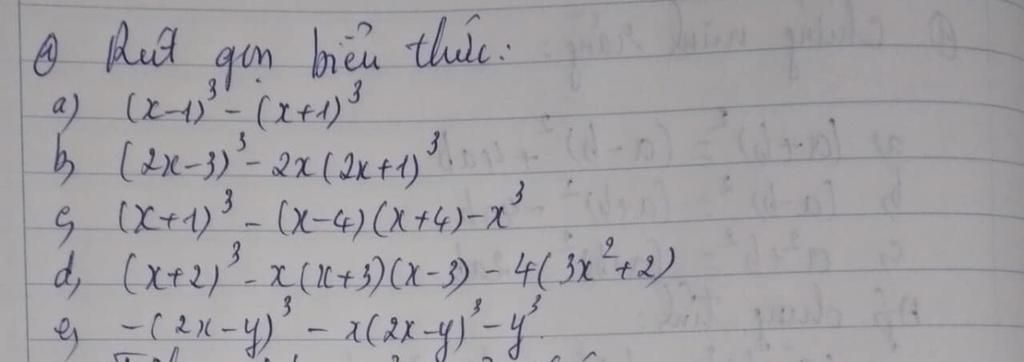 ④ Rút gọn biểu thức:
a) (x-1)³ - (x+1)³
b, (2x-3)³ - 2x(2x+1)³
c, (x+1)³ - (x-4)(x+4) - x³
d, (x+2)³ - x(x+3)(x-3) - 4(3x²+2)
e, -(2x-y)³ - x(2x-y)³ - y³